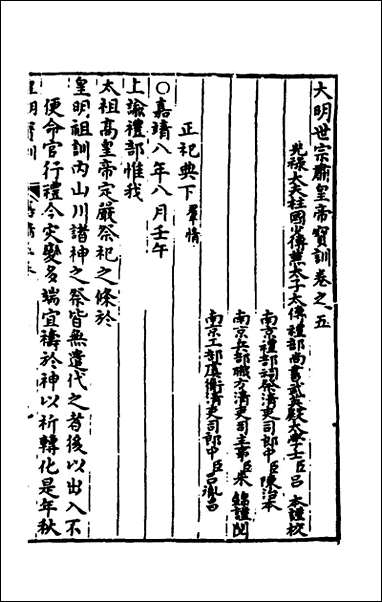 大明世宗肅皇帝寶訓卷之五
光祿大夫柱國少傅兼太子太傅禮部尚書武英殿大學士臣呂 本謹校
南京禮部祠祭清吏司郎中臣陳治本
南京兵部職方清吏司主事臣朱 錦謹閱
南京工部虞衡清吏司郎中臣呂胤昌
正祀典下 羣情
○嘉靖八年八月壬午
上諭禮部惟我
太祖高皇帝定嚴祭祀之條於
皇明祖訓內山川諸神之祭皆無遣代之者後以出入不
便命官行禮今灾變多端宜禱於神以祈轉化是年秋